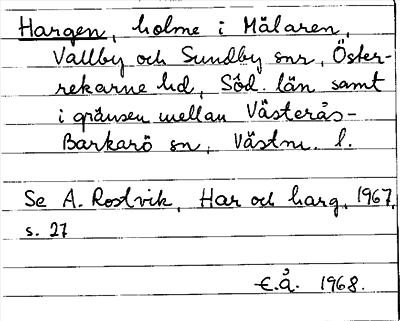 Hargen, holme i Mälaren,
Vallby och Sundby snr, Öster-
rekarne hd, Söd. län samt
i gränsen mellan Västerås-
Barkarö sn, Västm. l.
Se A. Rostvik, Har och harg, 1967,
s. 27
E.Å. 1968.